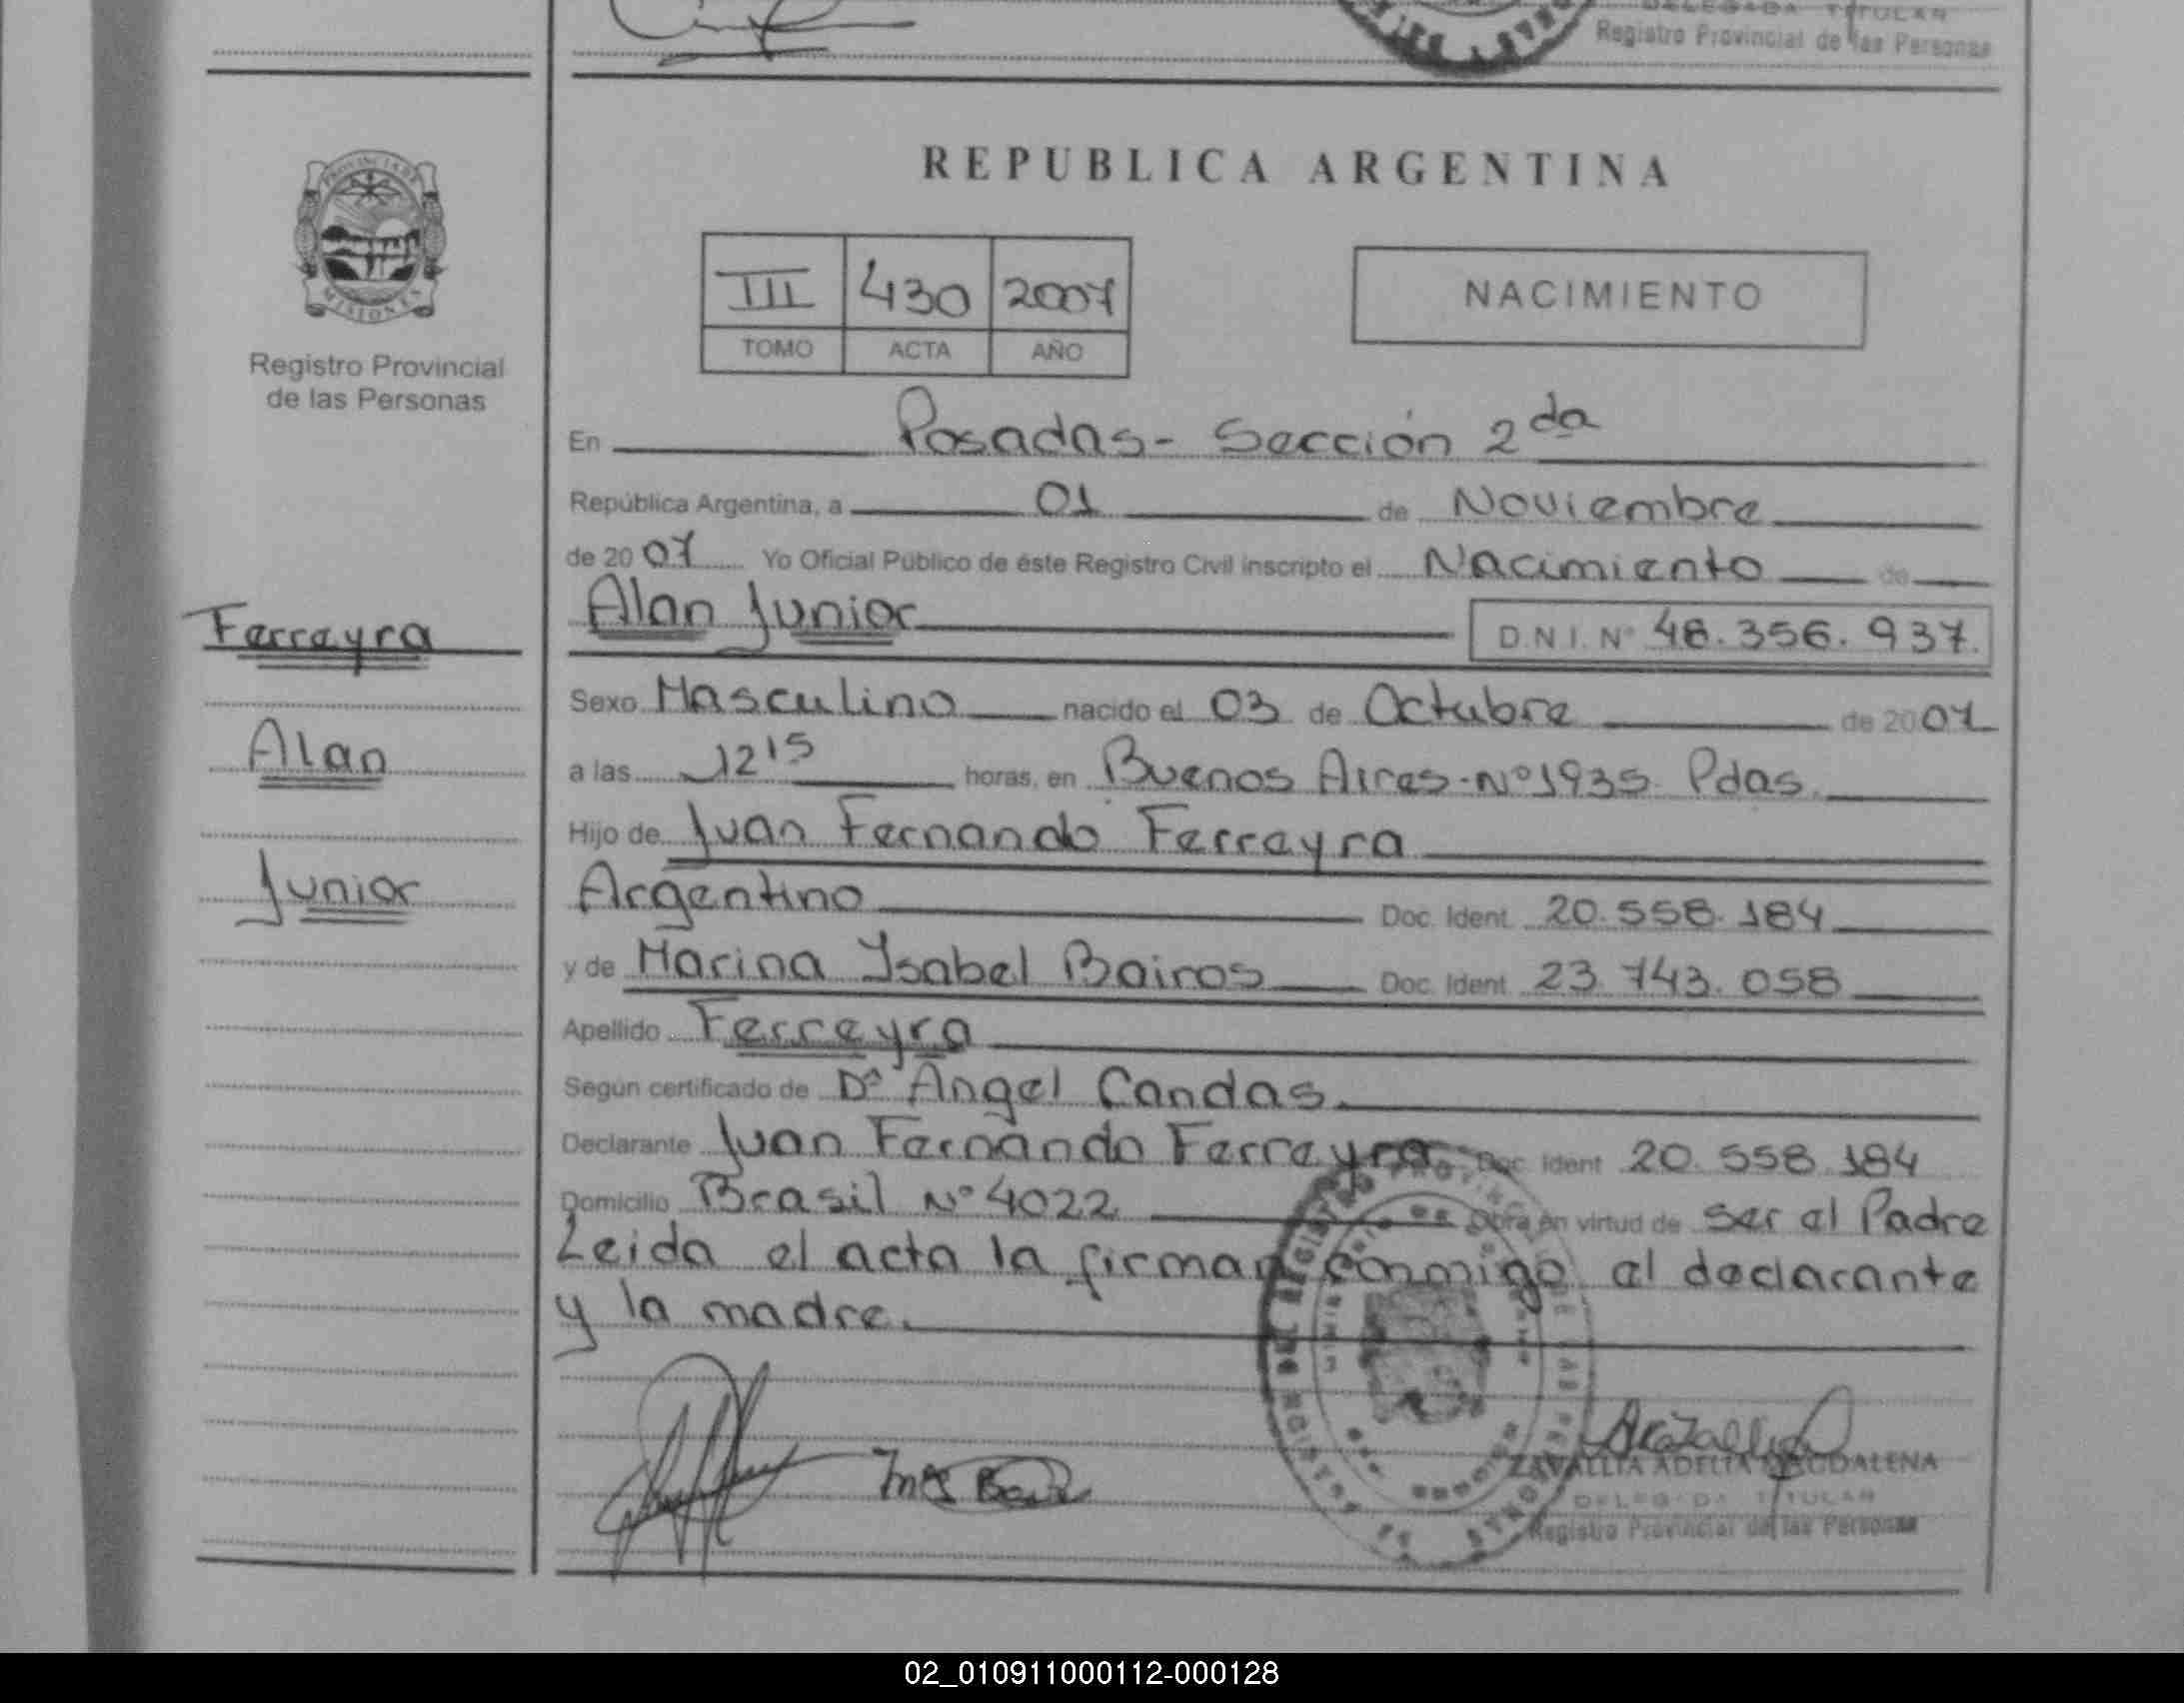 DELEGADA TITULAR
Registro Provincial de las Personas
PROVINCIA DE
MISIONES
Registro Provincial
de las Personas
REPUBLICA ARGENTINA
III 430 2007
TOMO ACTA AÑO
NACIMIENTO
En Posadas - Sección 2da
República Argentina, a 01 de Noviembre
de 2007 Yo Oficial Público de éste Registro Civil inscripto el Nacimiento de
Ferreyra
Alan Junior
D.N.I. Nº 48.356.937.
Sexo Masculino nacido el 03 de Octubre de 2007
Alan
a las 12 15 horas, en Buenos Aires - Nº 1935 Pdas.
Hijo de Juan Fernando Ferreyra
Junior
Argentino Doc. Ident. 20.558.184
y de Marina Ysabel Bairos Doc. Ident. 23.743.058
Apellido Ferreyra
Según certificado de Dº Angel Candas.
Declarante Juan Fernando Ferreyra Doc. Ident 20.558.184
Domicilio Brasil Nº 4022 Obra en virtud de ser el Padre
Leida el acta la firman conmigo el declarante
y la madre.
ZAVALLIA ADELIA MAGDALENA
DELEGADA TITULAR
Registro Provincial de las Personas
02_010911000112-000128